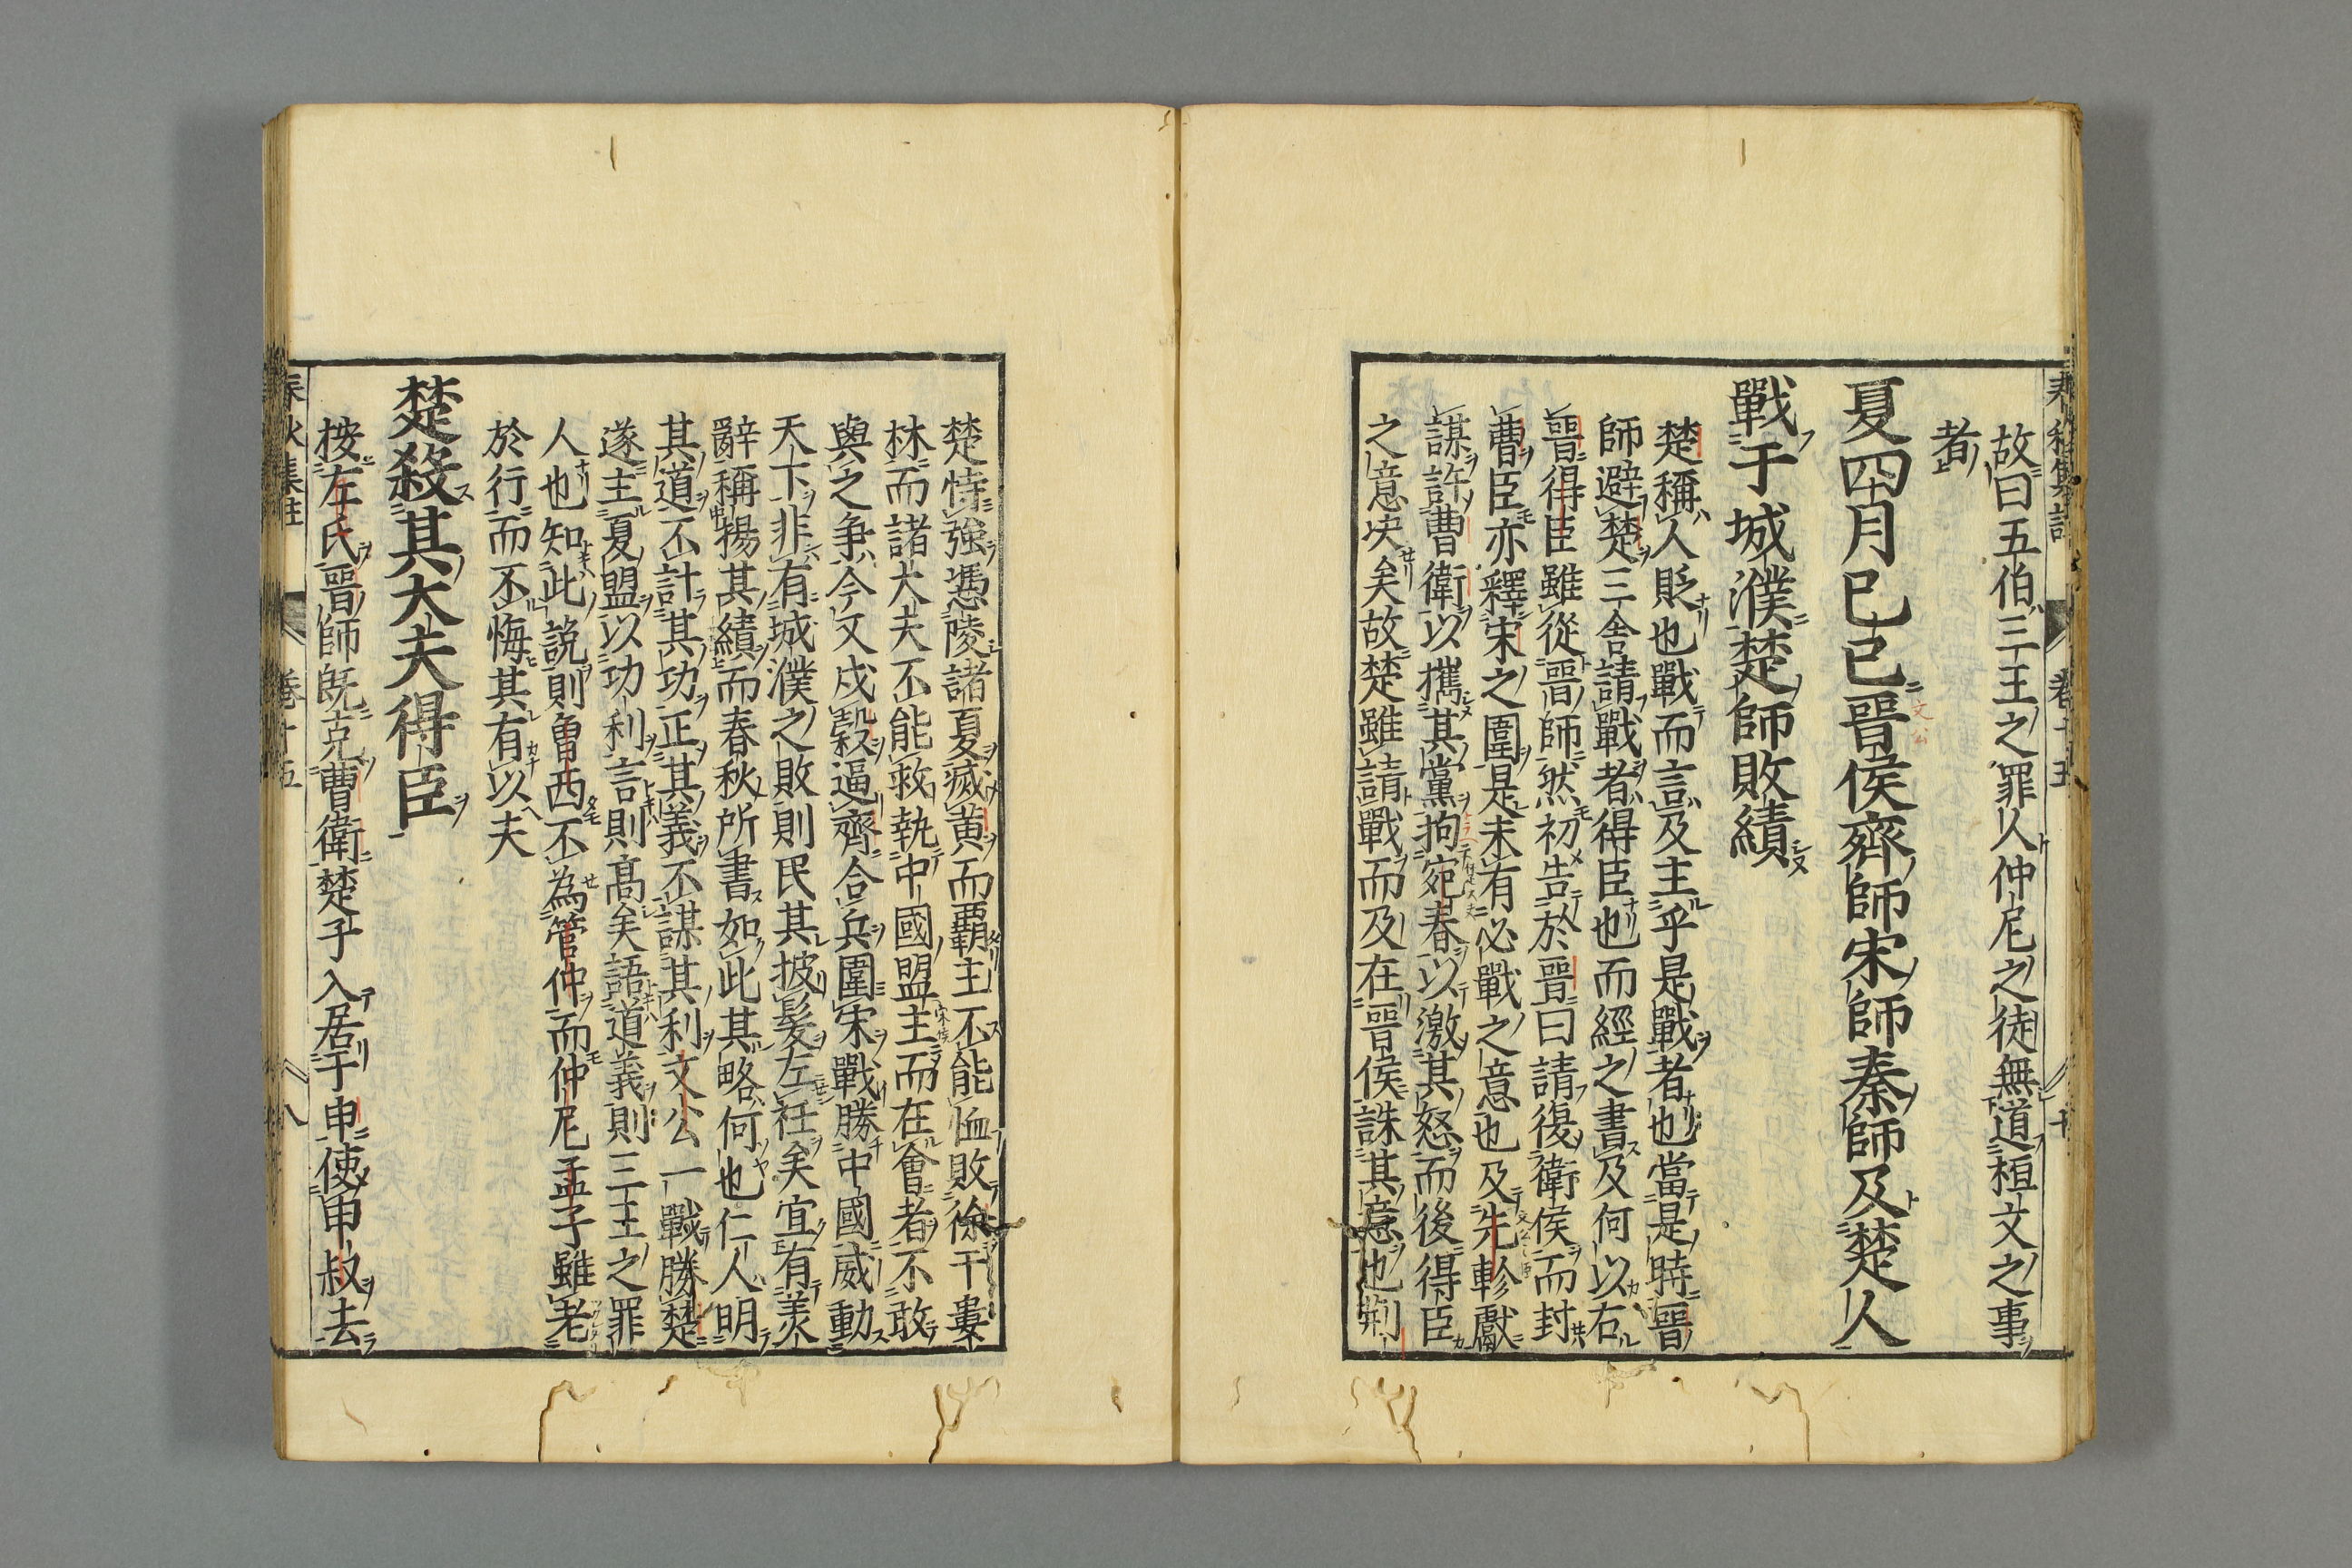 故曰五伯三王之罪人仲尼之徒無道桓文之事
者
夏四月己巳晉侯齊師宋師秦師及楚人
戰于城濮楚師敗績
楚稱人貶也戰而言及主乎是戰者也當是時晉
師避楚三舍請戰者得臣也而經之書及何以右
晉得臣雖從晉師然初告於晉曰請復衛侯而封
曹臣亦釋宋之圍是未有必戰之意也及先軫獻
謀許曹衛以攜其黨拘宛春以激其怒而後得臣
之意决矣故楚雖請戰而及在晉侯誅其意也荆
楚恃強憑陵諸夏滅黄而覇主不能恤敗徐于婁
林而諸大夫不能救執中國盟主而在會者不敢
與之争今又戍穀逼齊合兵圍宋戰勝中國威動
天下非有城濮之敗則民其披髮左衽矣宜有美
辭稱揚其績而春秋所書如此其略何也仁人明
其道不計其功正其義不謀其利文公一戰勝楚
遂主夏盟以功利言則髙矣語道義則三王之罪
人也知此說則曽西不為管仲而仲尼孟子雖老
於行而不悔其有以夫
楚殺其大夫得臣
按左氏晉師既克曹衛楚子入居于申使申叔去
春秋集註
卷十五
八